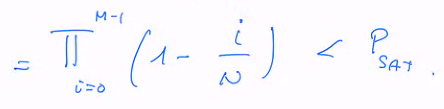 = ∏_{i=0}^{M-1} (1 - i/N) < P_{SAT}.